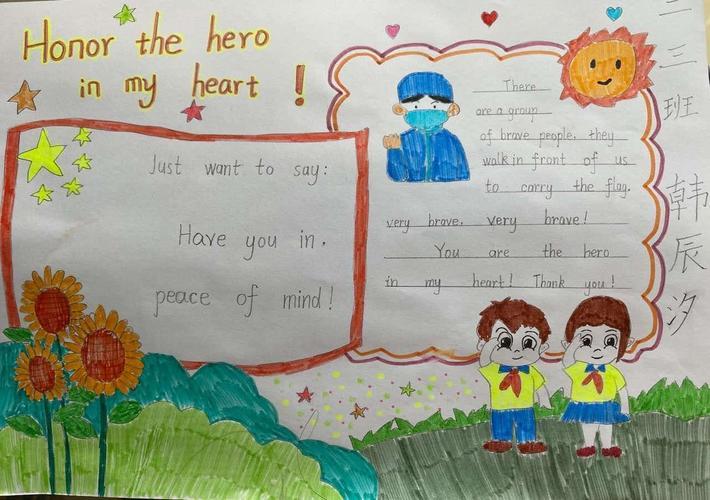 Honor the hero
in my heart !
Just want to say:
Have you in.
peace of mind!
There
are a group
of brave people, they
walk in front of us
to carry the flag.
very brave. very brave!
You are the hero
in my heart! Thank you!
二三班 韩辰汐